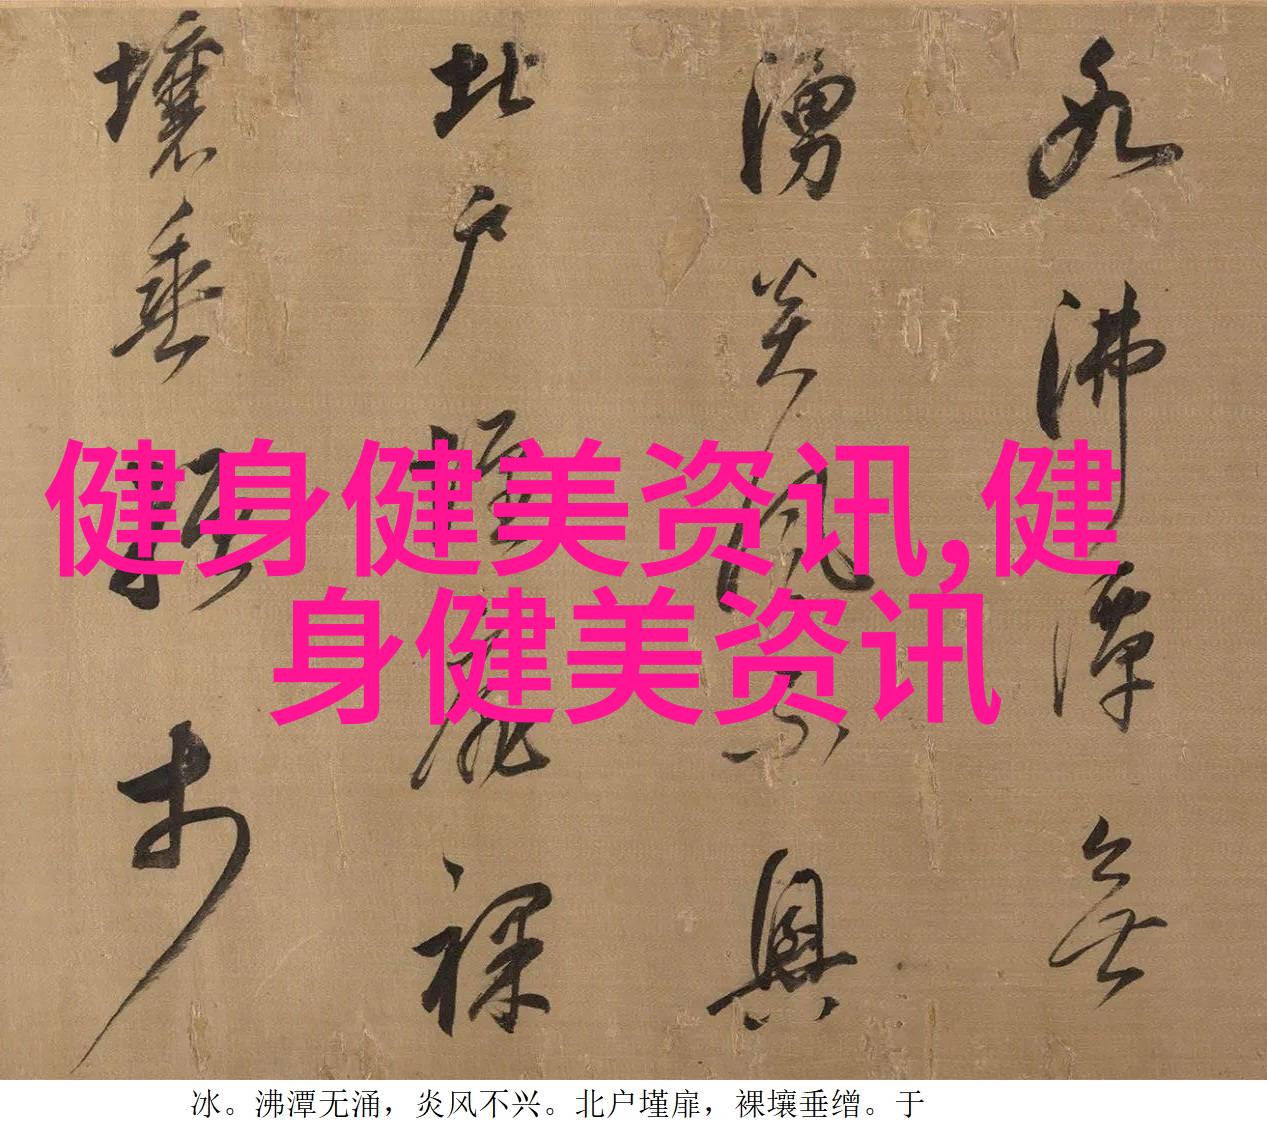 冰沸潭無
湧炎風不興
北戶墐扉裸
壤垂繒于
健身健美资讯,健
身健美资讯
冰。沸潭无涌，炎风不兴。北户墐扉，裸壤垂缯。于